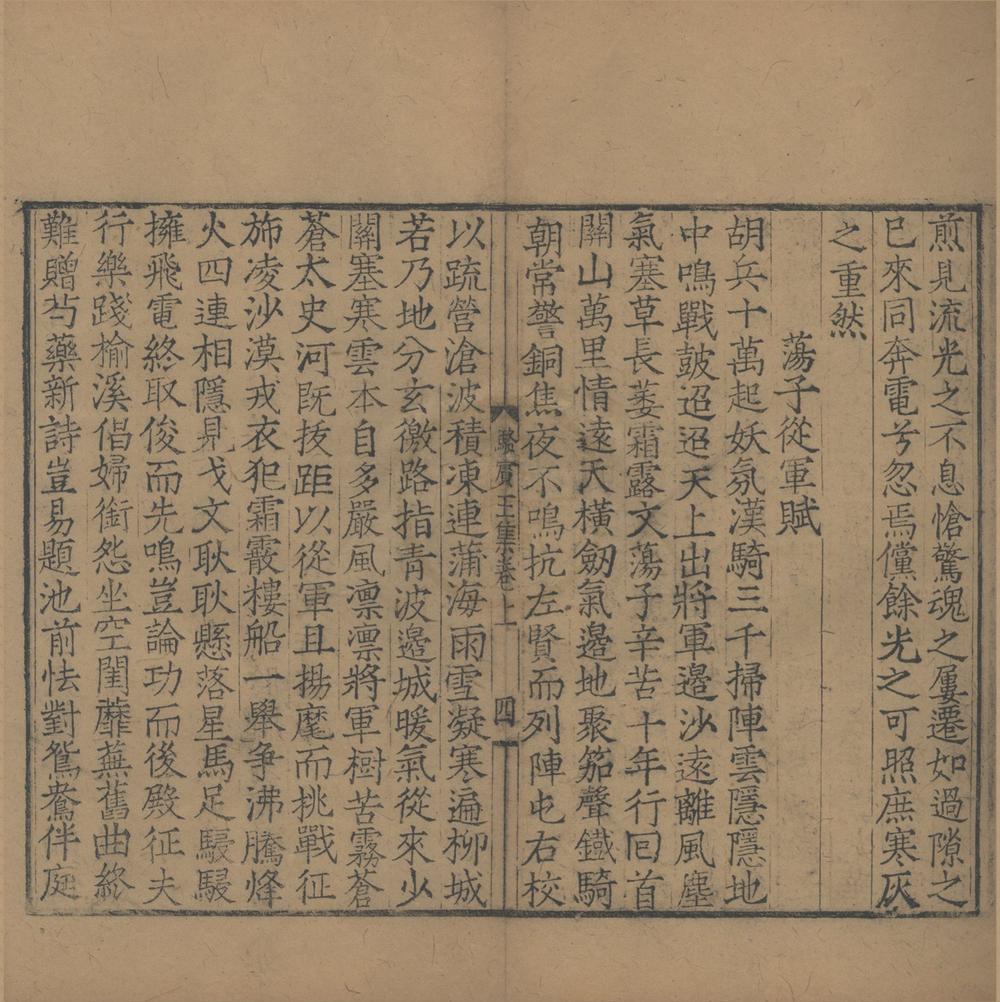 煎見流光之不息愴驚魂之屢遷如過隙之
已來同奔電兮忽焉儻餘光之可照庶寒灰
之重然
蕩子從軍賦
胡兵十萬起妖氛漢騎三千掃陣雲隱隱地
中鳴戰皷迢迢天上出將軍邉沙遠離風塵
氣塞草長萎霜露文蕩子辛苦十年行回首
關山萬里情遠天橫劒氣邉地聚笳聲鐵騎
朝常警銅焦夜不鳴抗左賢而列陣屯右校
駱賓王集卷上 四
以疏營滄波積凍連蒲海雨雪凝寒遍柳城
若乃地分玄徼路指青波邉城暖氣從來少
關塞寒雲本自多嚴風凛凛將軍樹苦霧蒼
蒼太史河旣拔距以從軍且揚麾而挑戰征
斾凌沙漠戎衣犯霜霰樓船一舉爭沸騰烽
火四連相隱見戈文耿耿懸落星馬足駸駸
擁飛電終取俊而先鳴豈論功而後殿征夫
行樂踐榆溪倡婦銜怨坐空閨蘼蕪舊曲終
難贈芍藥新詩豈易題池前怯對鴛鴦伴庭